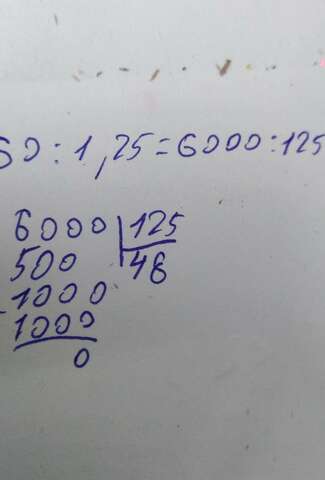 60:1,25=6000:125
6000 125
500 48
-1000
1000
0